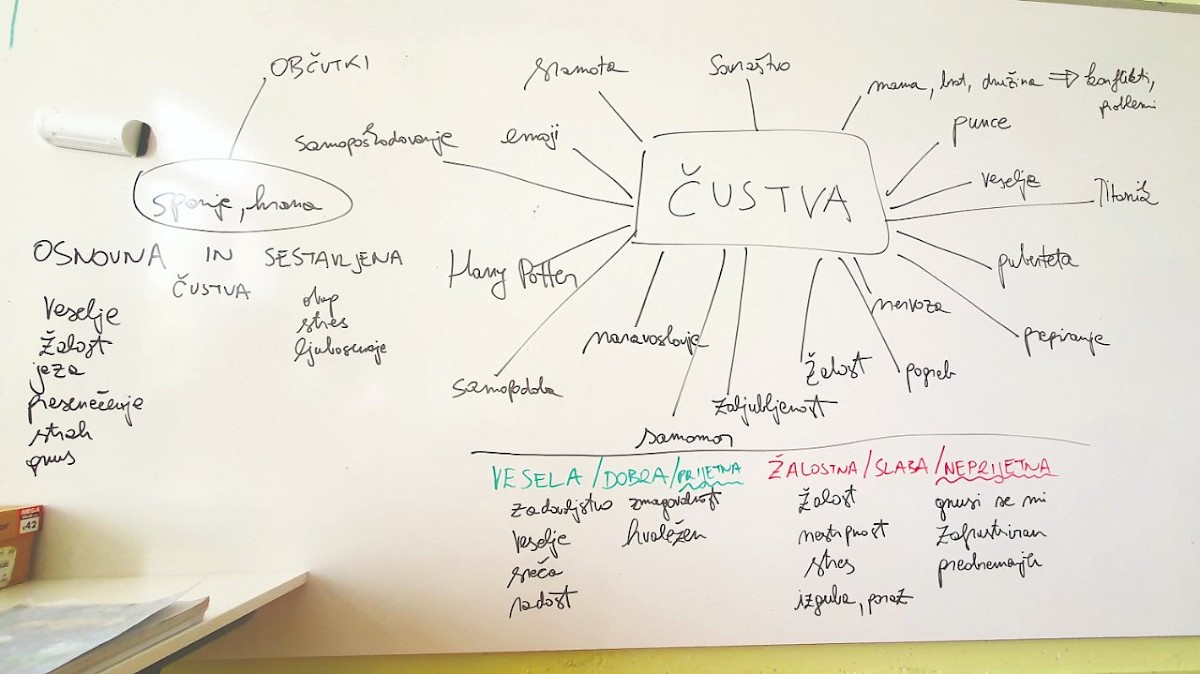 OBČUTKI
spanje, hrana
OSNOVNA IN SESTAVLJENA
ČUSTVA
veselje
žalost
jeza
presenečenje
strah
gnus
obup
stres
ljubosumje
sramota
Sovraštvo
mama, brat, družina ⇒ konflikti,
problemi
samopoškodovanje
emoji
punce
ČUSTVA
veselje
Titanik
Harry Potter
puberteta
naravoslovje
nervoza
prepiranje
samopodoba
žalost
pogreb
zaljubljenost
samomor
VESELA/DOBRA/PRIJETNA
zadovoljstvo
veselje
sreča
radost
zmagovalnost
hvaležen
ŽALOSTNA/SLABA/NEPRIJETNA
žalost
nestrpnost
stres
izguba, poraz
gnusi se mi
zafrustriran
MEGA
42